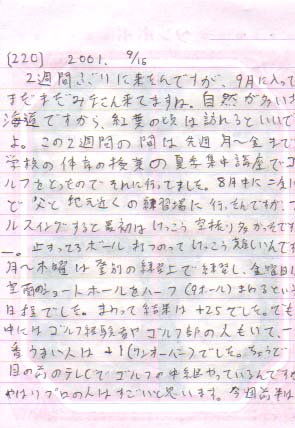 [220] 2001. 9/15
2週間ぶりに来たんですが、9月に入って
まだまだみなさん来てますね。自然が多いガ
海道ですから、紅葉の頃は訪れるといいで
よ。この2週間の間は先週 月〜金まで
学校の体育の授業の夏季集中講座でゴ
ルフをとったので それに行ってました。8月中に二人
ど父と地元近くの練習場に行ったんですが、
ルスイングすると最初はけっこう空振り多かったです
ー。止まってるボール打つのって けっこう難しいんです
月〜木曜は登別の練習上で練習し、金曜日に
室蘭のショートホールをハーフ(9ホール)まわるという
日程でした。まわって結果は+25でした。でも
中にはゴルフ経験者やゴルフ部の人もいて、一
番うまい人は+1(ワンオーバー)でした。ちょうど
目の前のテレビでゴルフの中継やっているんですが
やはりプロの人はすごいと思います。今週前半は